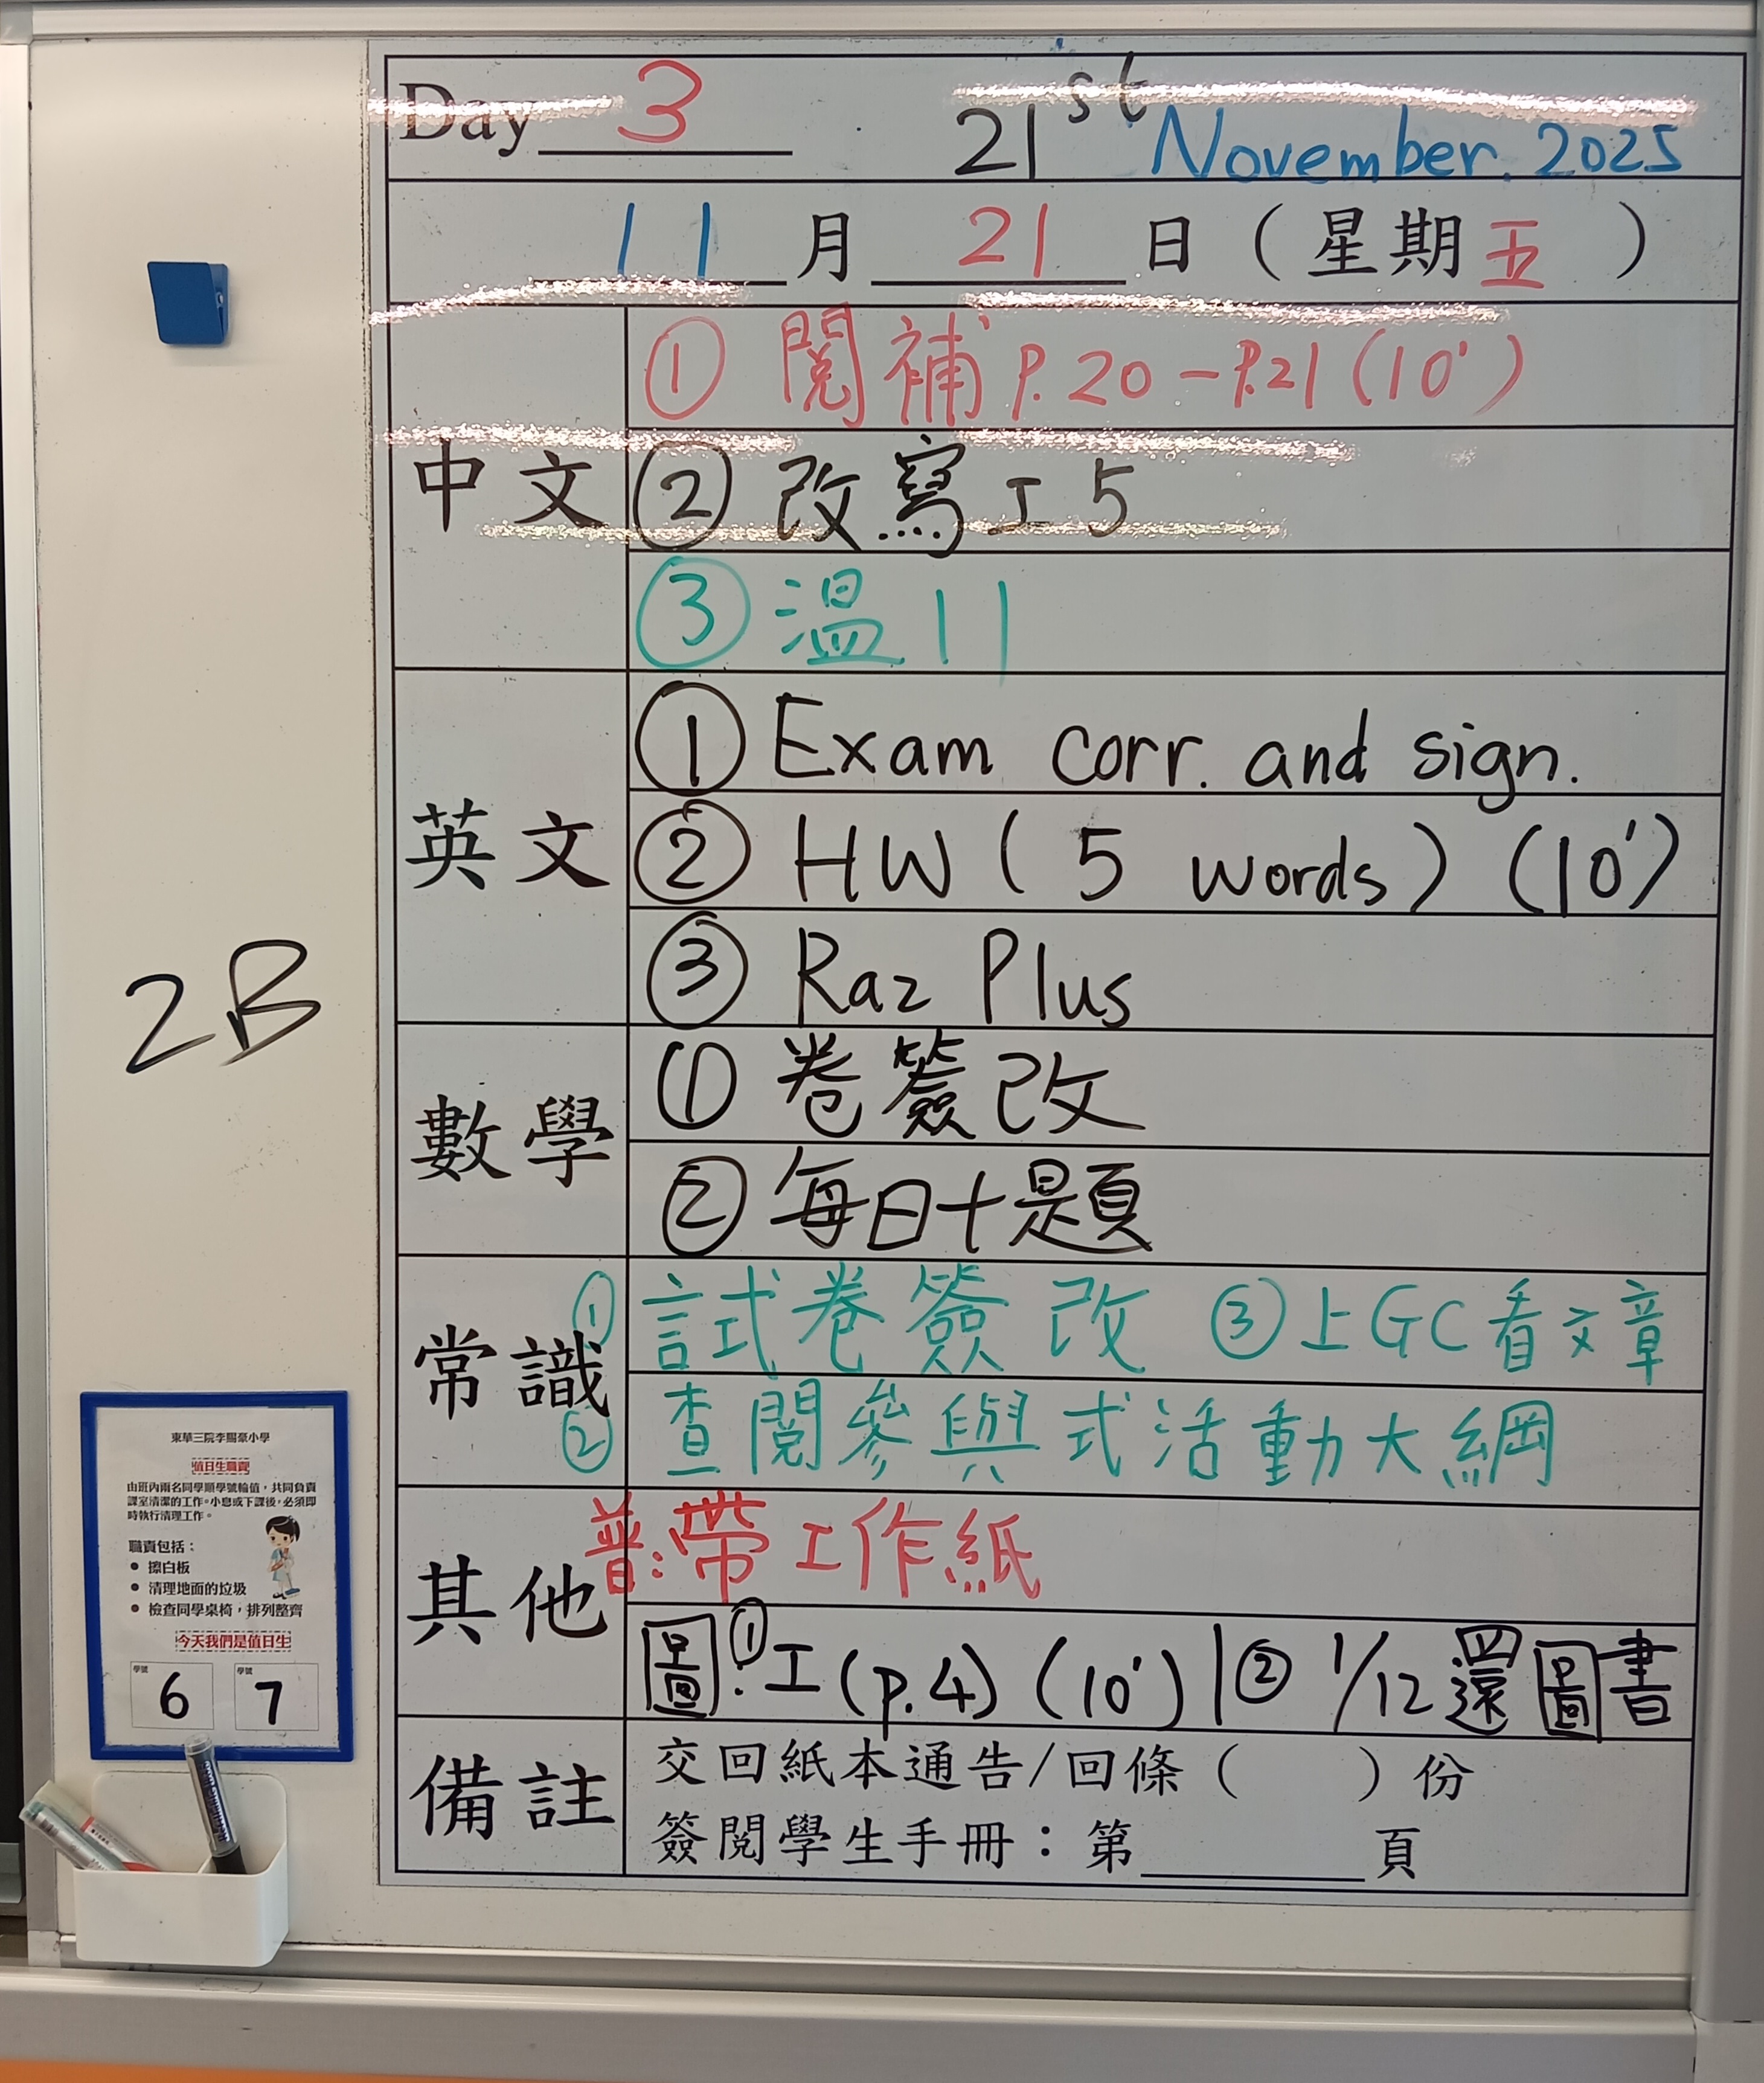 Day 3 21st November. 2025
11 月 21 日 (星期五)
中文
① 閱補 P.20 - P.21 (10')
② 改寫工5
③ 溫11
英文
① Exam corr. and sign.
② HW ( 5 words ) (10')
③ Raz Plus
數學
① 卷簽改
② 每日十題
常識
① 試卷簽改 ③上GC看文章
② 查閱參與式活動大綱
其他
普:帶工作紙
圖:①工(p.4) (10') | ② 1/12 還圖書
備註
交回紙本通告/回條 ( ) 份
簽閱學生手冊:第 頁
2B
東華三院李賜豪小學
值日生職責
由班內兩名同學順學號輪值,共同負責
課室清潔的工作。小息或下課後,必須即
時執行清理工作。
職責包括:
• 擦白板
• 清理地面的垃圾
• 檢查同學桌椅,排列整齊
今天我們是值日生
學號 6 學號 7